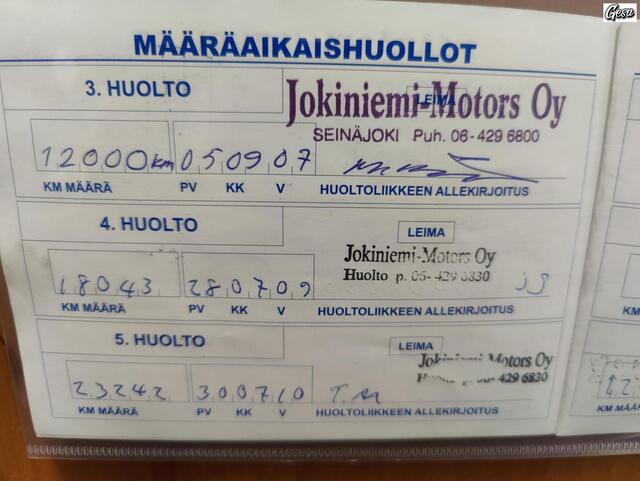 Gesu
MÄÄRÄAIKAISHUOLLOT
3. HUOLTO
LEIMA
Jokiniemi-Motors Oy
SEINÄJOKI Puh. 06-429 6800
12000km 050907
KM MÄÄRÄ PV KK V HUOLTOLIIKKEEN ALLEKIRJOITUS
4. HUOLTO
LEIMA
Jokiniemi-Motors Oy
Huolto p. 06-429 6830
18043 280709 JJ
KM MÄÄRÄ PV KK V HUOLTOLIIKKEEN ALLEKIRJOITUS
5. HUOLTO
LEIMA
Jokiniemi Motors Oy
Huolto p. 06-429 6830
23242 300710 T.M
KM MÄÄRÄ PV KK V HUOLTOLIIKKEEN ALLEKIRJOITUS
KM MÄÄRÄ